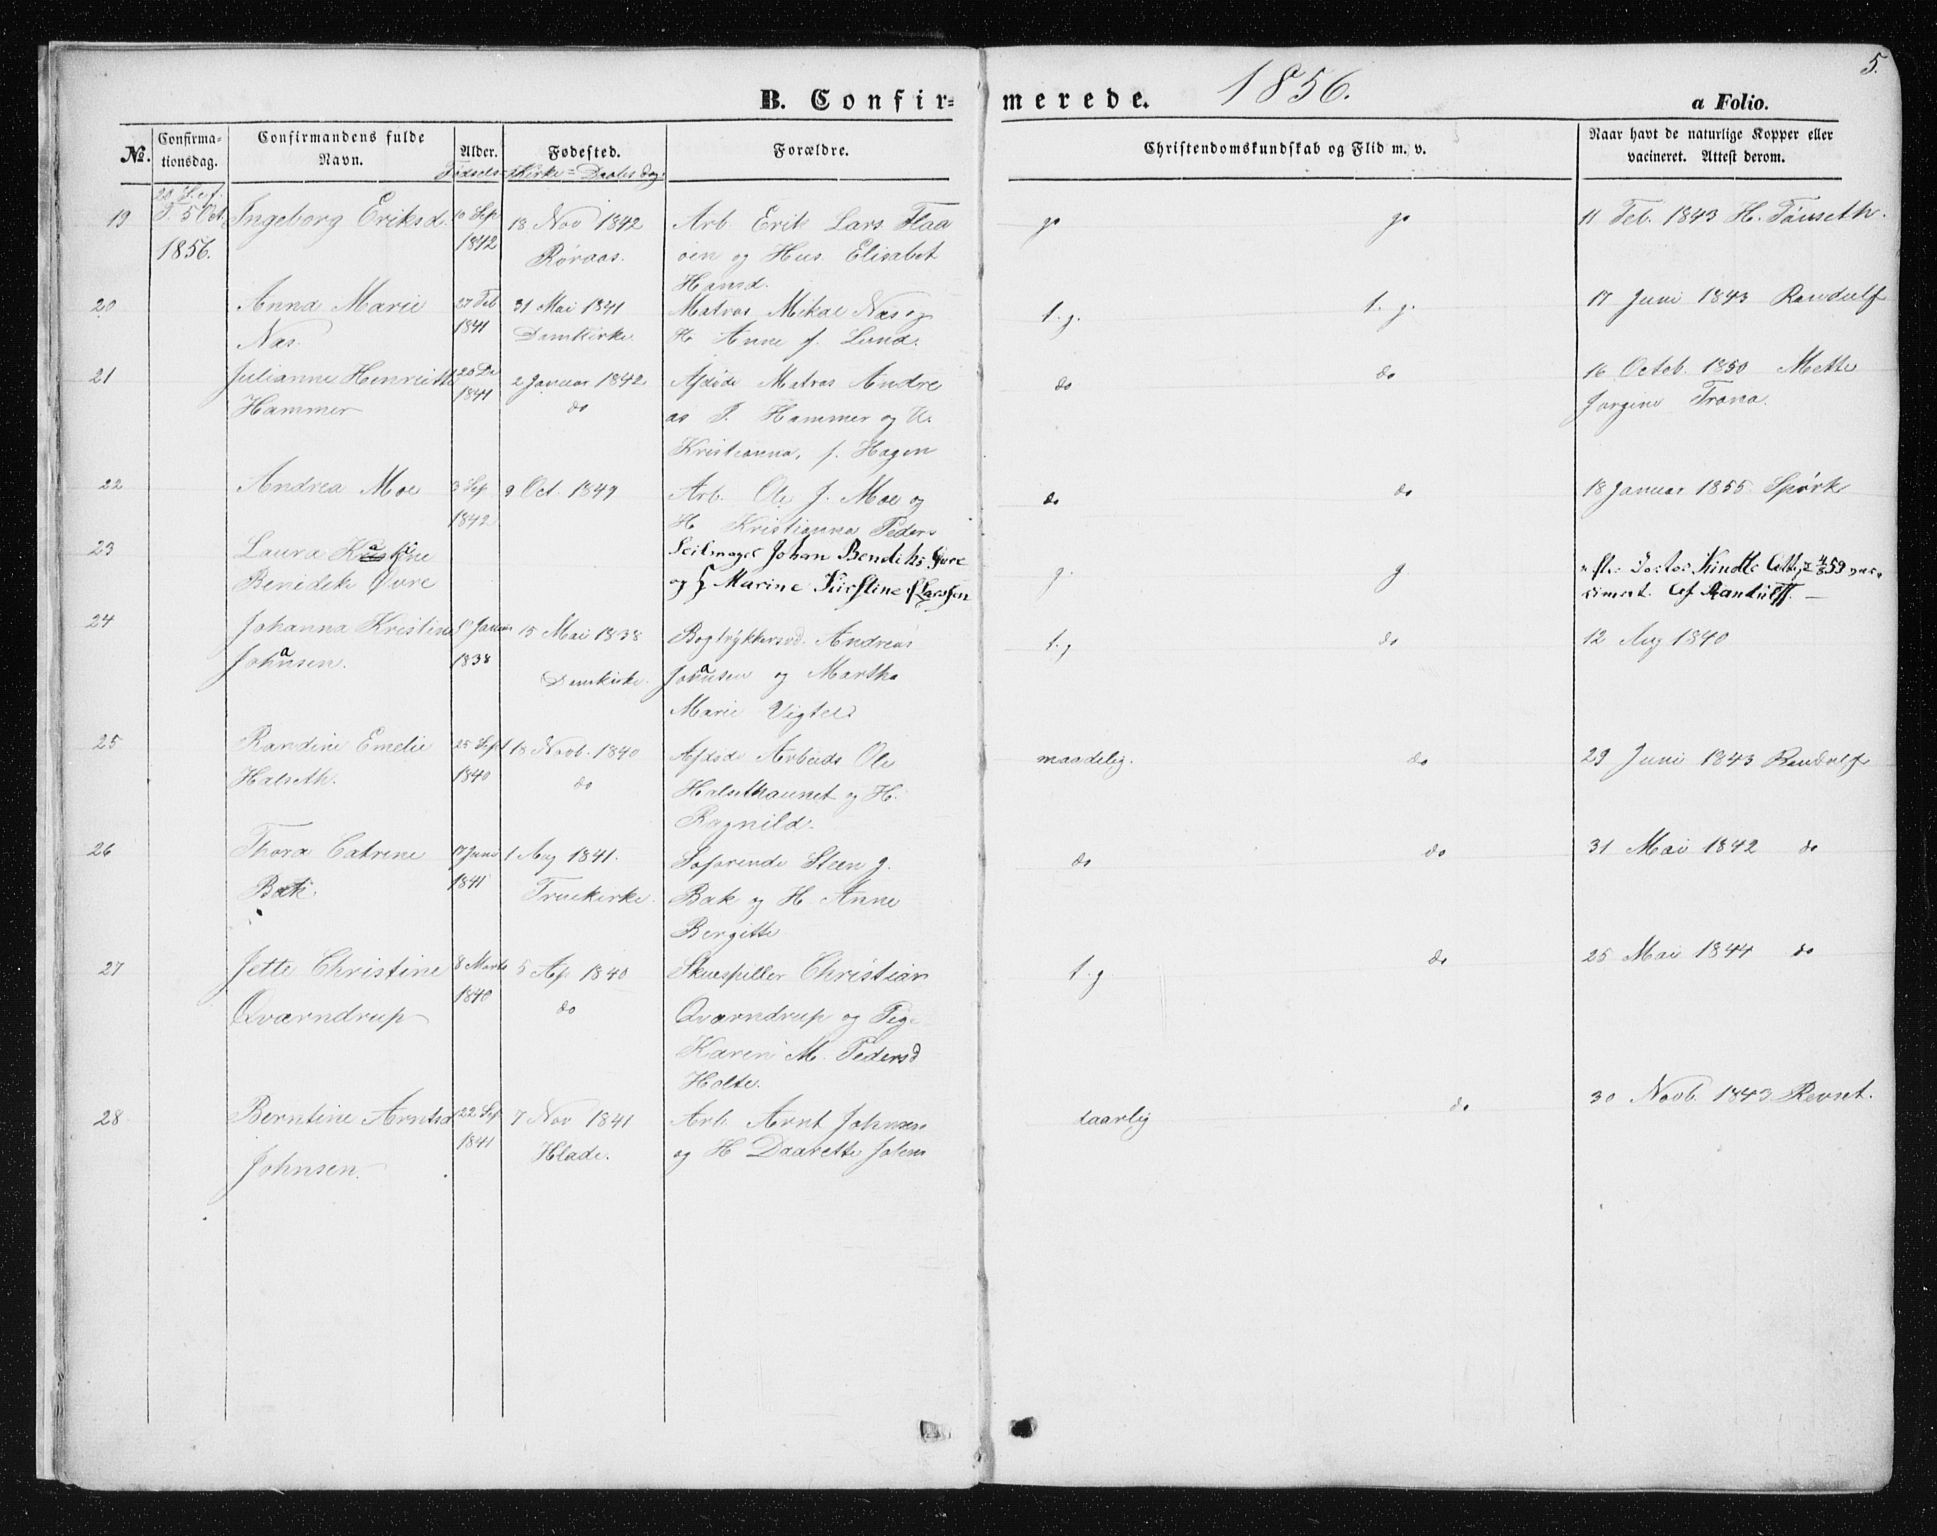 5.
B. Confir= merede. 1856. a Folio.
No. Confirma-tionsdag. Confirmandens fulde Navn. Alder. Fødested. Forældre. Christendomskundskab og Flid m. v. Naar havt de naturlige Kopper eller vacineret. Attest derom.
Fødsels Kirke= Daabs dag
19 5 Oct Ingeborg Eriksd. 10 Sep 18 Nov 1842 Arb Erik Lars Flaa g g 11 Feb. 1843 H. Tønseth.
1856. 1842 Røraas. øien og Hus. Elisabet
Hansd.
20 Anna Marie 27 Feb 31 Mai 1841 Matros Mikal Næs og t. g. t. g. 17 Juni 1843 Randulf
Næs. 1841 Domkirke. H Anne f. Lund.
21 Julianne Henriette 20 De 2 Januar 1842 Afdøde Matros Andre do do 16 Octeb. 1850 Mette
Hammer 1841 do as P. Hammer og H. Jørgine Trana.
Kristianna, f. Hagen
22 Andrea Moe 3 Sep 9 Oct. 1842 Arb. Ole J. Moe og do do 18 Januar 1855 Spørk
1842 H Kristianna Peders
23 Laura Seilmager Johan Bendiks Gvre g. g
Benedik Øvre og H Marine Kirstine f Larssen Randulff.
24 Johanna Kristine Januar 15 Mai 1838 Bogtrykkersvd. Andreas t. g do 12 Aug 1840
Johansen. 1838 Domkirke. Johansen og Martha
Marie Vigtels
25 Randine Emelie 25 Sept 18 Novb. 1840 Afdøde Arbeids Ole maadelig. do 29 Juni 1843 Randulf
Halseth. 1840 do Halsethaunet og H.
Ragnild.
26 Thora Catrine 17 Juni 1 Aug 1841. Søfarende Steen g. do do 31 Mai 1842 do
Bak. 1841 Fruekirke. Bak og H. Anne
Bergitte
27 Jette Christine 8 Marts 5 Ap. 1840 Skuespiller Christian t. g do 25 Mai 1844 do
Qværndrup 1840 do Qværndrup og Pige
Karen M. Pedersd
Holte.
28 Berntine Arntsd 22 Sep 7 Nov 1841 Arb. Arnt Johnsen daarlig do 30 Novb. 1843 Revset.
Johnsen. 1841 Hlade. og H Daarette